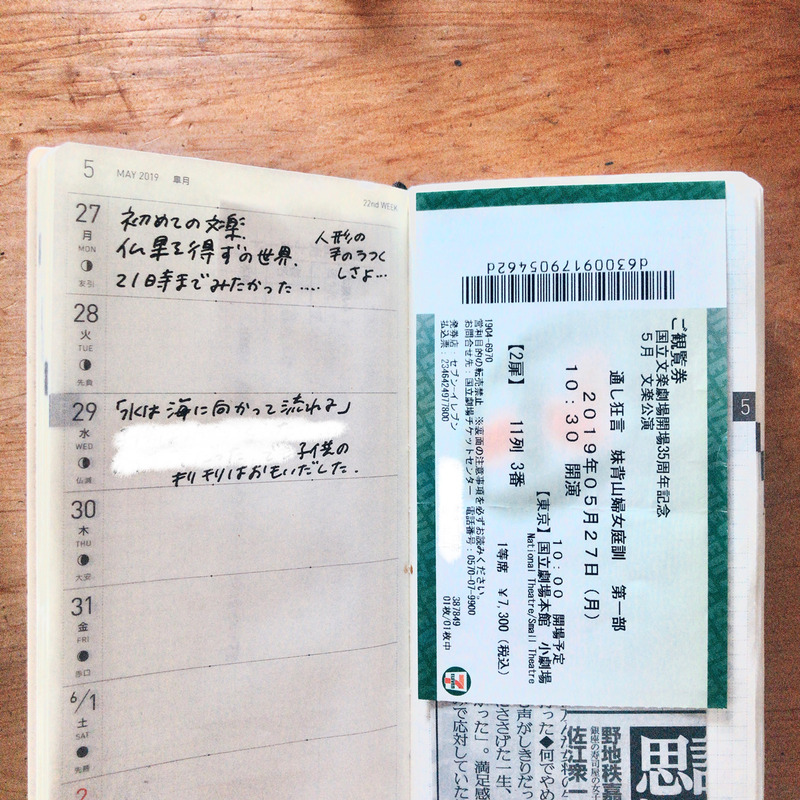 5 MAY 2019 皐月
22nd WEEK
27
月
MON
友引
初めての文楽.
仏果を得ずの世界.
21日寺までみたかった....
人形の
手のうつく
しさよ...
28
火
TUE
先負
29
水
WED
仏滅
「水は海に向かって流れる」
子供の
ギリギリはおもいだした.
30
木
THU
大安
31
金
FRI
赤口
6/1
土
SAT
先勝
2
5
d6300091790546​2d
ご観覧券
国立文楽劇場開場35周年記念
5月 文楽公演
通し狂言 妹背山婦女庭訓 第一部
2019年05月27日(月)
10:30 開演
10:00 開場予定
【東京】国立劇場本館 小劇場
National Theatre/Small Theatre
【2扉】 11列 3番
1等席 ¥7,300(税込)
1904-6970
営利目的の転売禁止 ※裏面の注意事項を必ずお読みください。
お問合せ先:国立劇場チケットセンター 電話番号:0570-07-9900
発券店:セブン-イレブン
払込票:2346424977800
387849
01枚/01枚中
7
ELEVEN
野地秩嘉
銀座の寿司屋の女子
佐江衆一
思
った◆何でやめ
った」。満足感
で応対していた